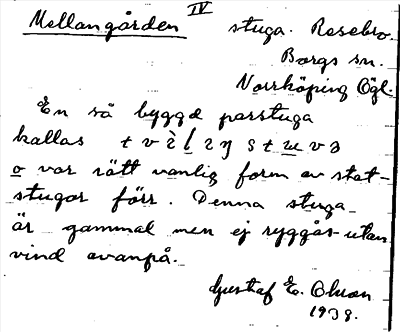 Mellangården IV stuga. Rosebro.
Borgs sn.
Norrköping Ögl.
En så byggd parstuga
kallas
o var rätt vanlig form av stat-
stugor förr. Denna stuga
är gammal men ej ryggås utan
vind ovanpå.
Gustaf E. Olsson
1938.